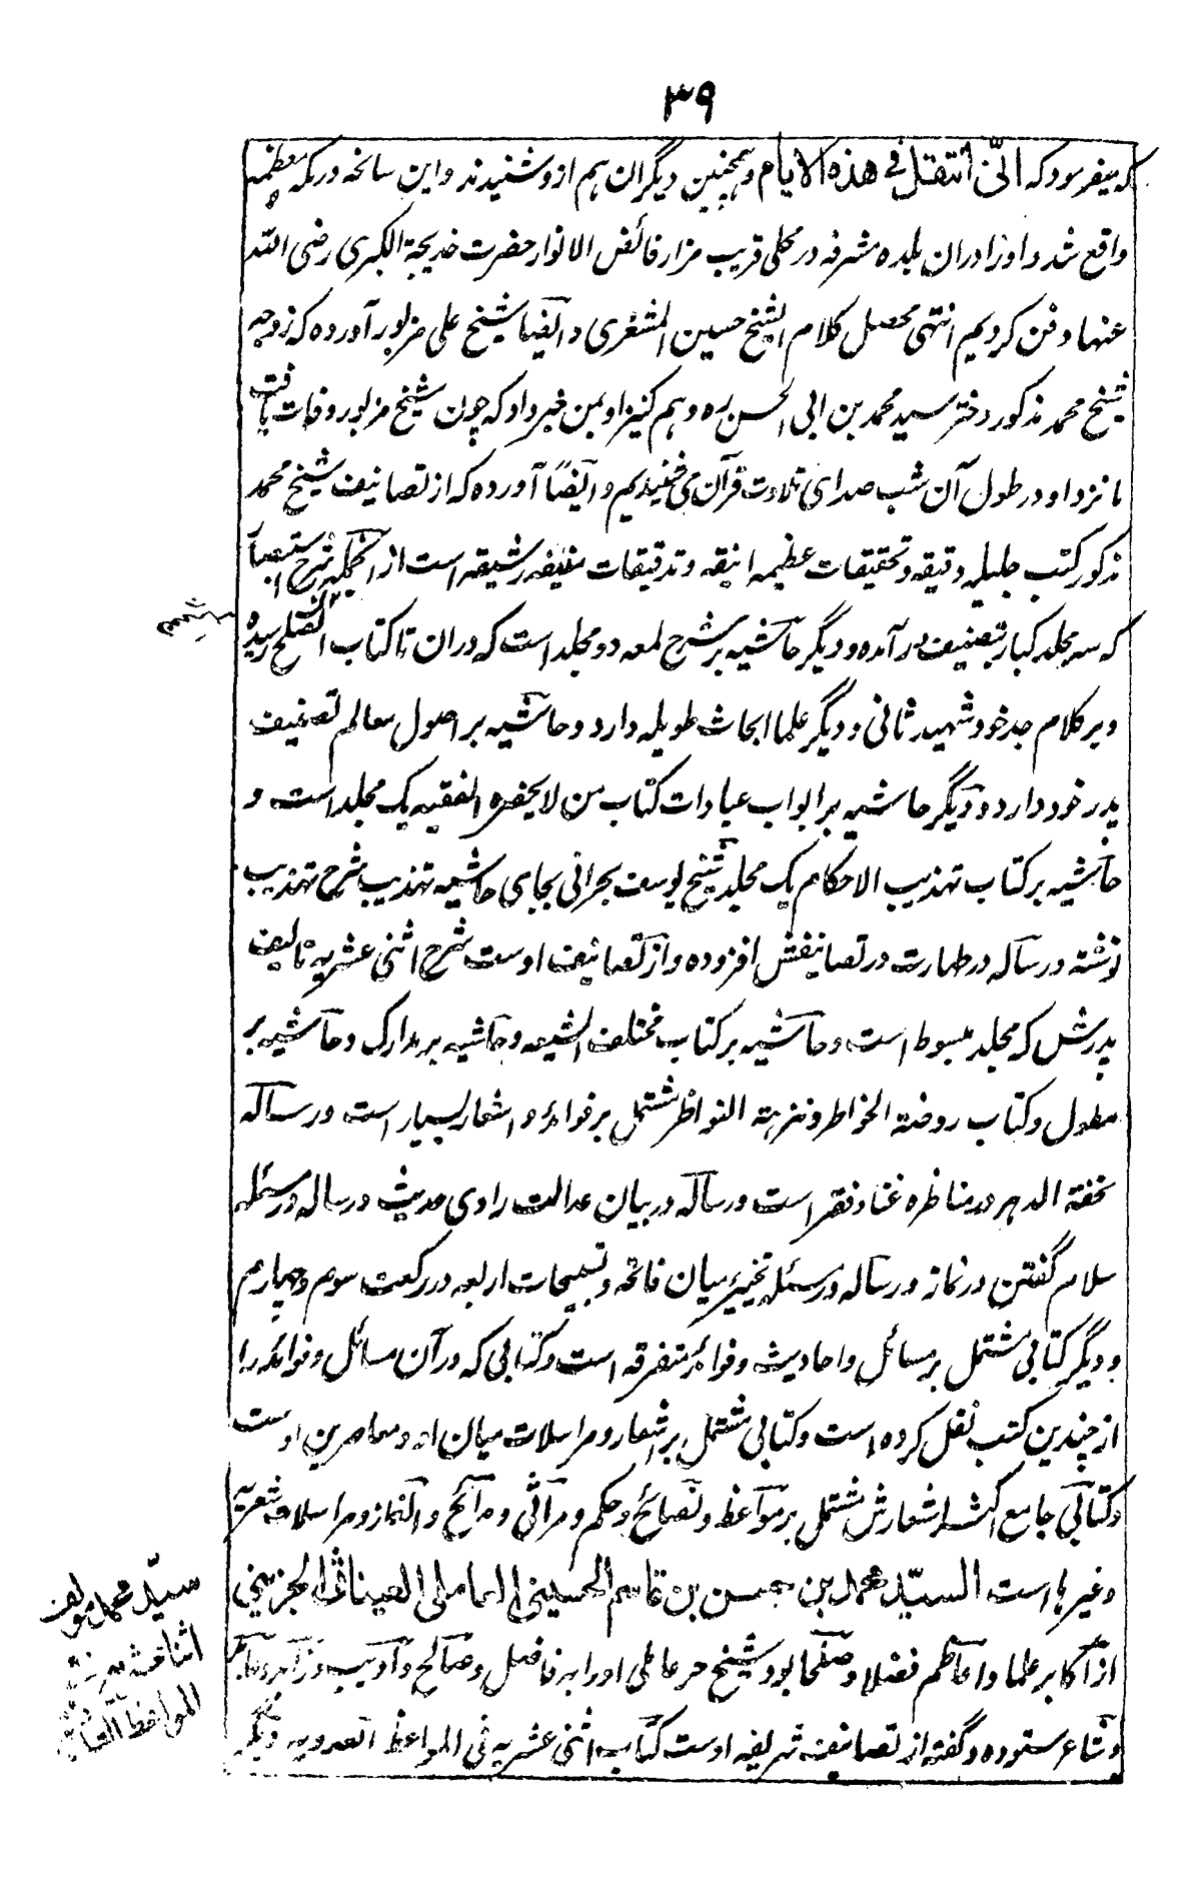 ۳۹
که میفرمود که انّی انتقل فی هذه الایام و همچنین دیگران هم از و شنیدند و این سانحه در مکه معظمه
واقع شد و او را دران بلده مشرفه در محلی قریب مزار فائض الانوار حضرت خدیجة الکبری رضی الله
عنها دفن کردیم انتهی محصل کلام الشیخ حسین المشغری و ایضا شیخ علی مزبور آورده که زوجه
شیخ محمد مذکور دختر سید محمد بن ابی الحسن ره و هم کنیز او بمن خبر داد که چون شیخ مزبور وفات یافت
ما نزد او در طول آن شب صدای تلاوت قرآن می شنیدیم و ایضًا آورده که از تصانیف شیخ محمد
مذکور کتب جلیله دقیقه و تحقیقات عظیمه انیقه و تدقیقات رشیقه است از انجمله شرح استبصار
که سه مجلد کبار بتصنیف در آمده و دیگر حاشیه بر شرح لمعه دو مجلد است که دران تا کتاب الصلح رسیده
و بر کلام جد خود شهید ثانی و دیگر علما ابحاث طویله دارد و حاشیه بر اصول معالم تصنیف
پدر خود دارد و دیگر حاشیه بر ابواب عبادات کتاب من لا یحضره الفقیه یک مجلد است و
حاشیه بر کتاب تهذیب الاحکام یک مجلد شیخ یوسف بحرانی بجای حاشیه تهذیب شرح تهذیب
نوشته و رساله در طهارت در تصانیفش افزوده و از تصانیف اوست شرح اثنی عشریه تالیف
پدرش که مجلد مبسوط است و حاشیه بر کتاب مختلف الشیعه و حاشیه بر مدارک و حاشیه بر
مطول و کتاب روضة الخواطر و نزهة النواظر مشتمل بر فوائد و اشعار بسیار است و رساله
تحفة الدهر در مناظره غنا و فقر است و رساله در بیان عدالت راوی حدیث و رساله در مسئله
سلام گفتن در نماز و رساله در مسئله تخییر میان فاتحه و تسبیحات اربعه در رکعت سوم و چهارم
و دیگر کتابی مشتمل بر مسائل و احادیث و فوائد متفرقه است و کتابی که در آن مسائل و فوائد را
از چندین کتب نقل کرده است و کتابی مشتمل بر اشعار و مراسلات میان او و معاصرین اوست
و کتابی جامع اکثر اشعارش مشتمل بر مواعظ و نصائح و حکم و مراثی و مدائح و الغاز و مراسلات شعریه
و غیرها است السیّد محمد بن حسن بن قاسم الحسینی العاملی العیناثی الجزینی
از اکابر علما و اعاظم فضلا و صلحا بود شیخ حر عاملی او را به فاضل و صالح و ادیب و زاهد و عابد
و شاعر ستوده و گفته از تصانیف شریفه اوست کتاب اثنی عشریه فی المواعظ العددیه و دیگر
سیّد محمد مولف
اثنا عشریه فی
المواعظ العددیه